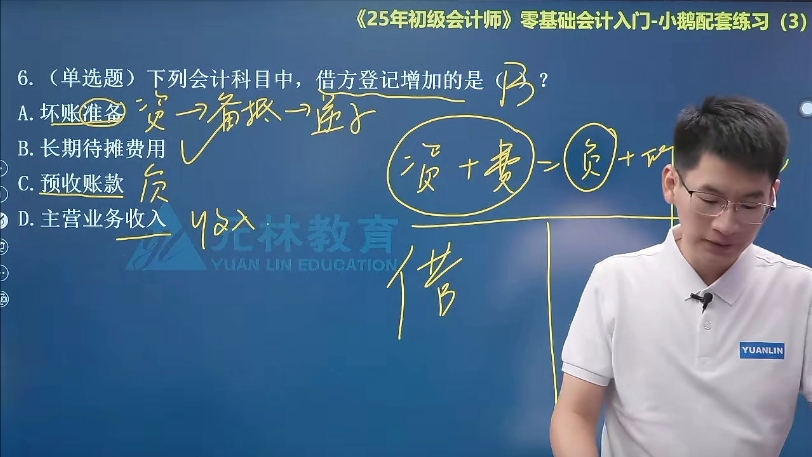 《25年初级会计师》零基础会计入门-小鹅配套练习（3）
6.（单选题）下列会计科目中，借方登记增加的是（B）？
A.坏账准备 资→备抵→
B.长期待摊费用 ✓
C.预收账款 负
D.主营业务收入 收入
资+费=负+所
借
元林教育
YUAN LIN EDUCATION
YUANLIN